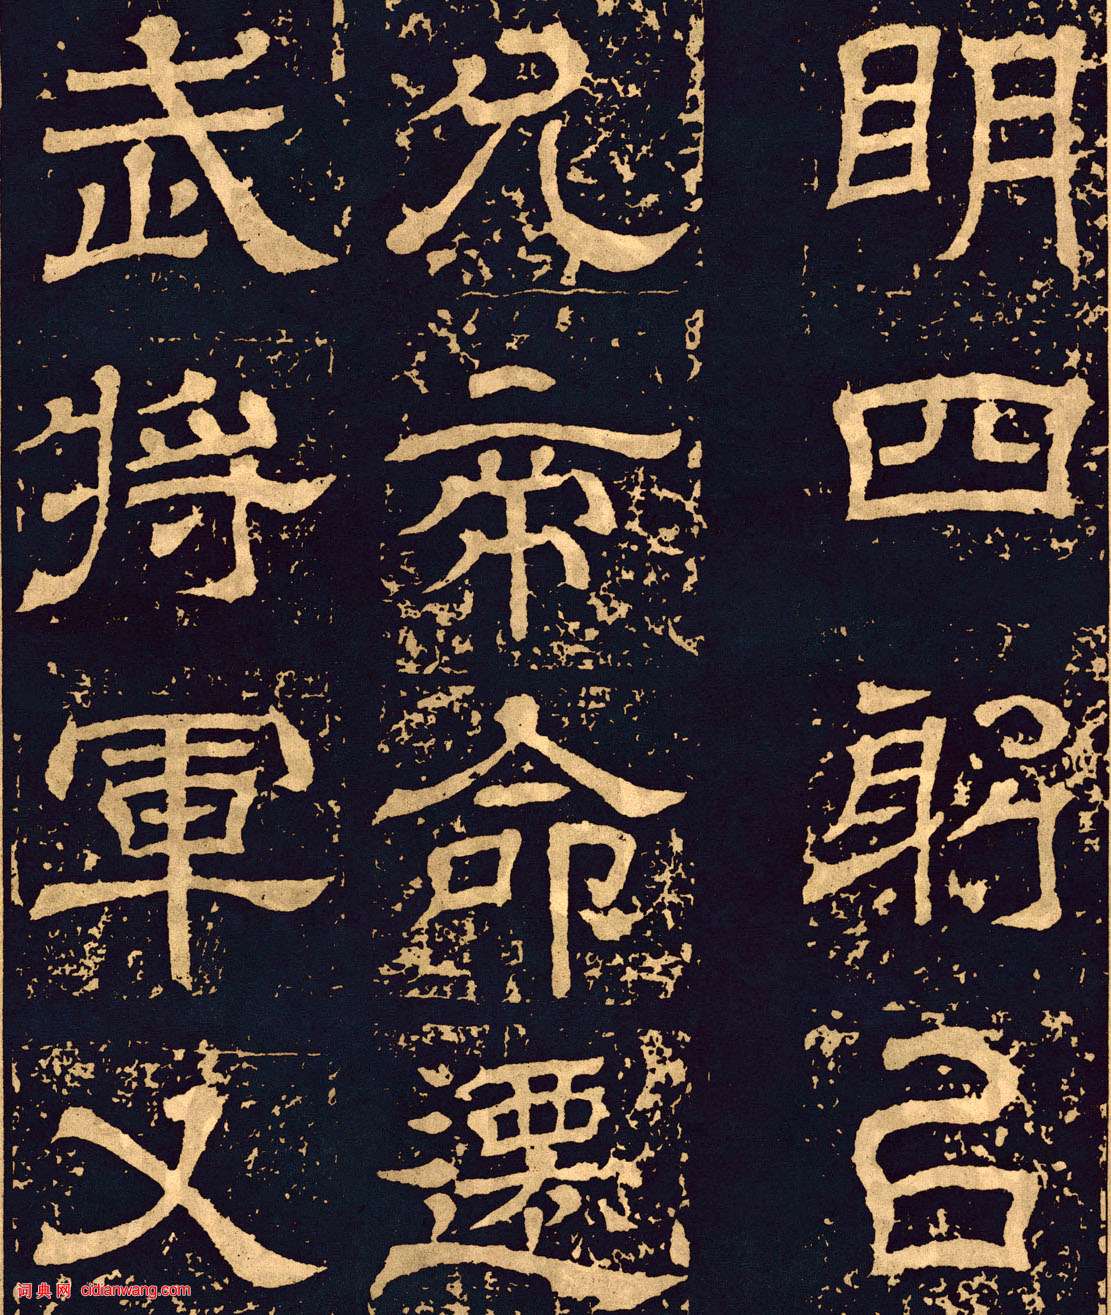 明四躬台
允帝命遷
武將軍乂
词典网 cidianwang.com